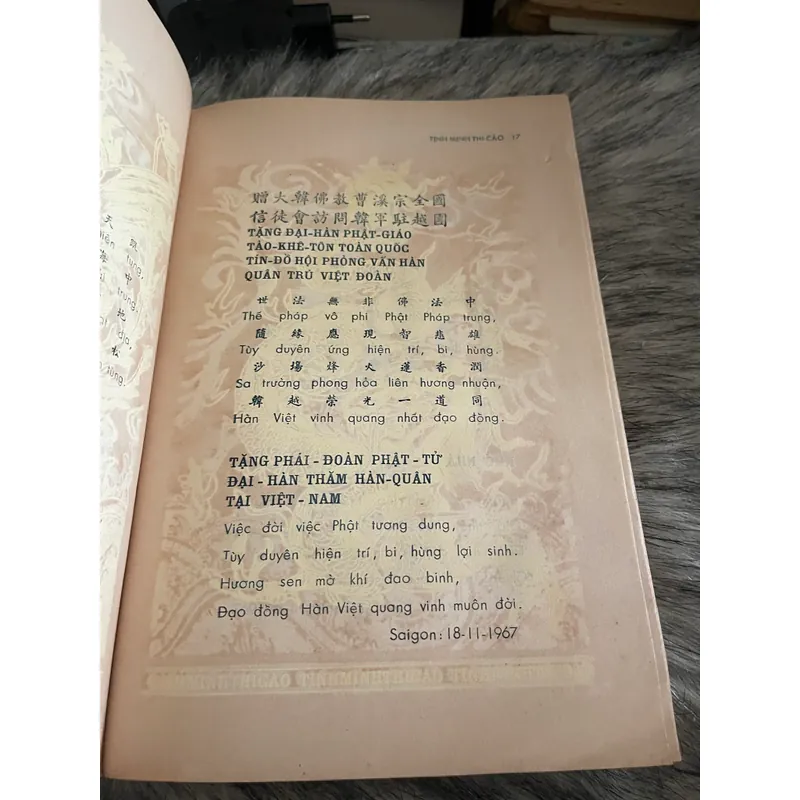 中
trung,
地
địa,
松
tùng.
TỊNH MINH THI CẢO 17
贈大韓佛教曹溪宗全國
信徒會訪問韓軍駐越團
TẶNG ĐẠI-HÀN PHẬT-GIÁO
TÀO-KHÊ-TÔN TOÀN QUỐC
TÍN-ĐỒ HỘI PHỎNG VẤN HÀN
QUÂN TRÚ VIỆT ĐOÀN
世 法 無 非 佛 法 中
Thế pháp vô phi Phật Pháp trung,
隨 緣 應 現 智 悲 雄
Tùy duyên ứng hiện trí, bi, hùng.
沙 場 烽 火 蓮 香 潤
Sa trường phong hỏa liên hương nhuận,
韓 越 榮 光 一 道 同
Hàn Việt vinh quang nhất đạo đồng.
TẶNG PHÁI - ĐOÀN PHẬT - TỬ
ĐẠI - HÀN THĂM HÀN-QUÂN
TẠI VIỆT - NAM
Việc đời việc Phật tương dung,
Tùy duyên hiện trí, bi, hùng lợi sinh.
Hương sen mở khí đao binh,
Đạo đồng Hàn Việt quang vinh muôn đời.
Saigon: 18-11-1967
THICAO TINHMINHTHICAO